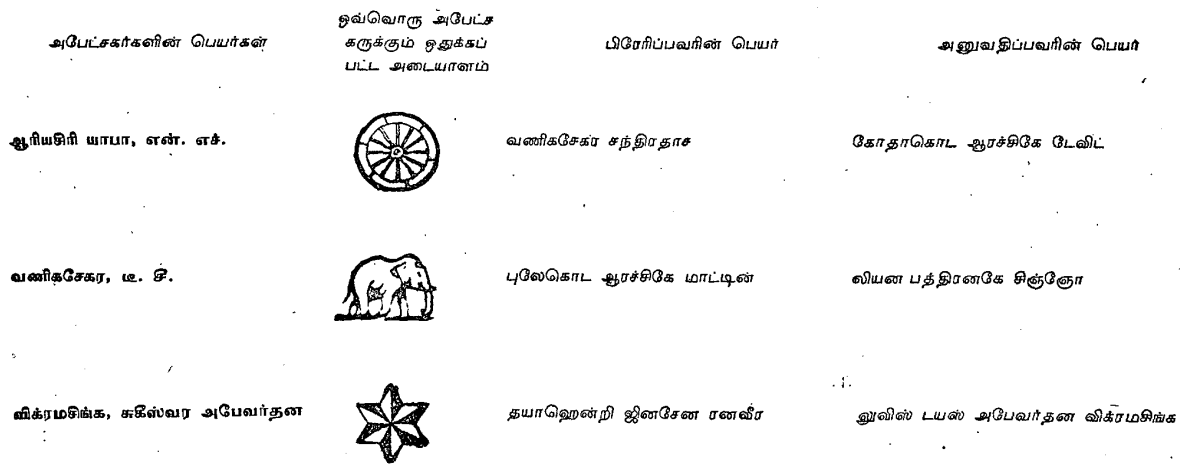 அபேட்சகர்களின் பெயர்கள்
ஒவ்வொரு அபேட்ச
கருக்கும் ஒதுக்கப்
பட்ட அடையாளம்
பிரேரிப்பவரின் பெயர்
அனுவதிப்பவரின் பெயர்
ஆரியசிரி யாபா, என். எச்.
வணிகசேகர சந்திரதாச
கோதாகொட ஆரச்சிகே டேவிட்
வணிகசேகர, டீ. சீ.
புலேகொட ஆரச்சிகே மாட்டின்
லியன பத்திரனகே சிஞ்ஞோ
விக்ரமசிங்க, சுகீஸ்வர அபேவர்தன
தயாஹென்றி ஜினசேன ரணவீர
லுவிஸ் டயஸ் அபேவர்தன விக்ரமசிங்க